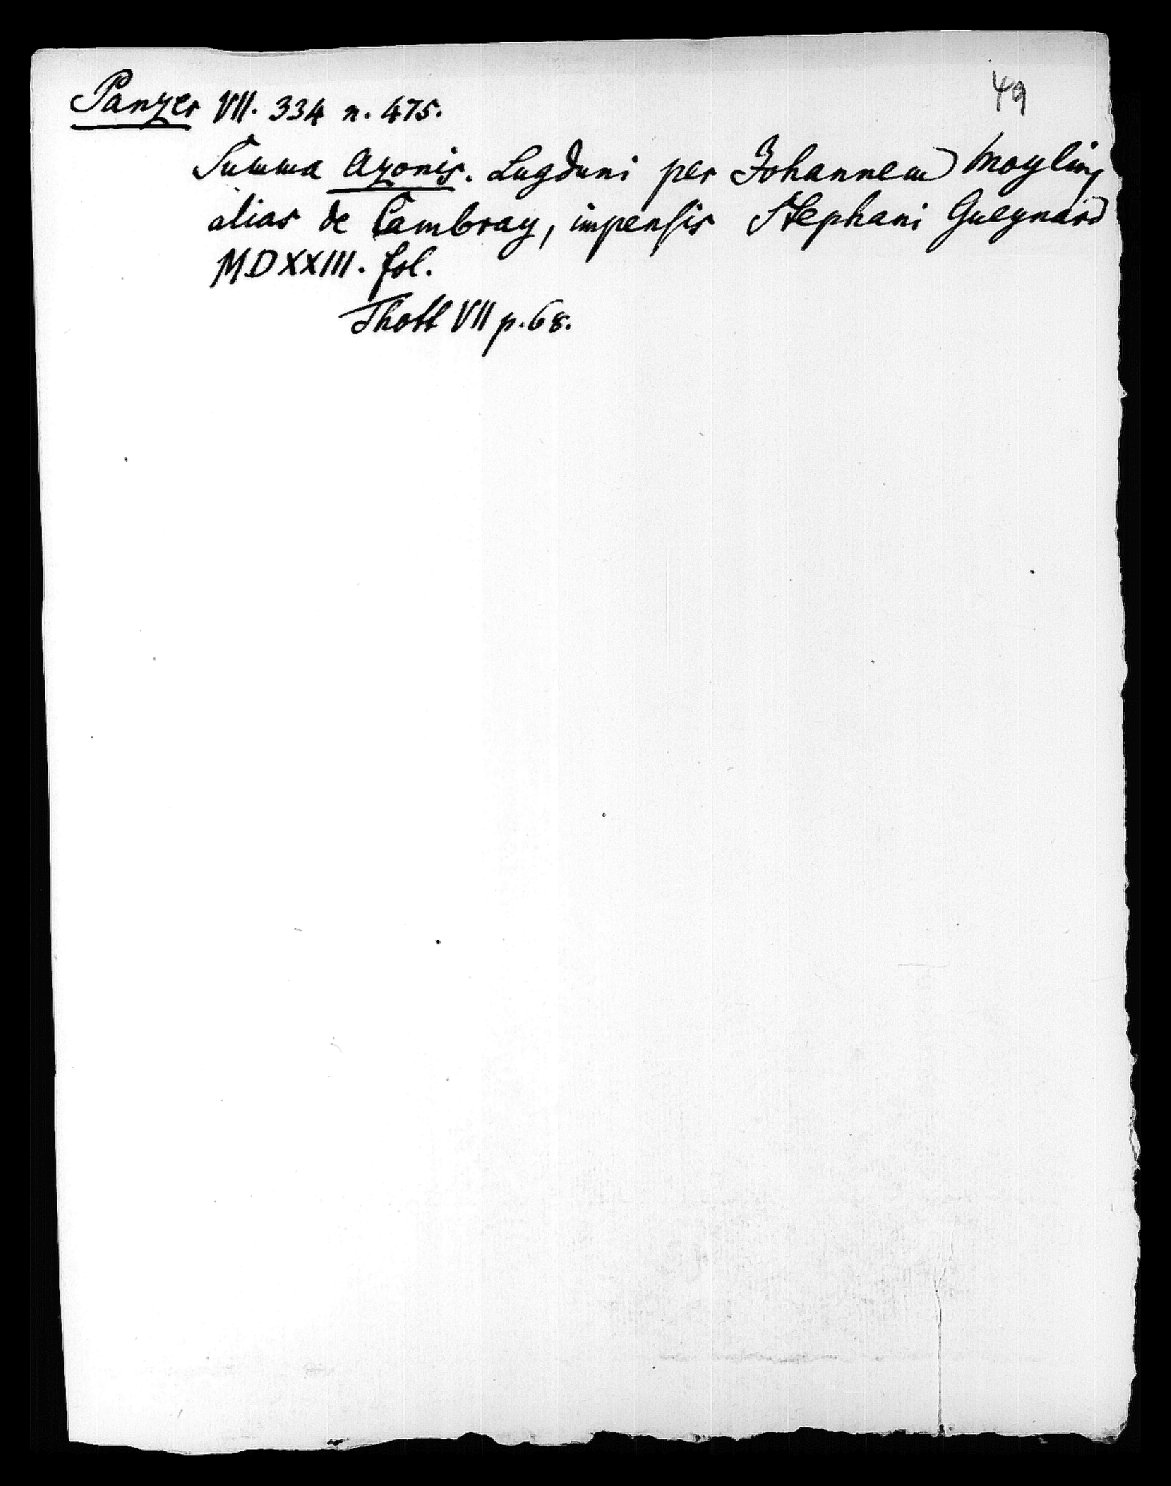 49
Panzer VII. 334 n. 475.
Summa Azonis. Lugduni per Johannem Moylin,
alias de Cambray, impensis Stephani Gueynard
MDXXIII. fol.
Thott VII p. 68.